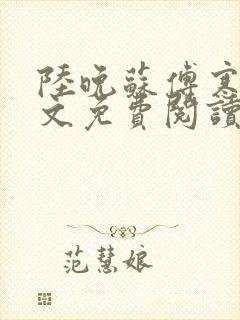 陸晚蘇傅寒
文免費閱讀
范慧娘